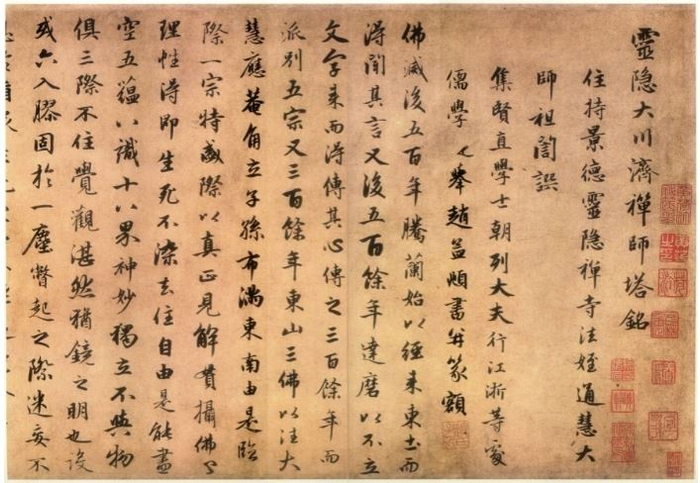 靈隐大川濟禪師塔銘
住持景德靈隐禅寺法姪通慧大
師祖誾譔
集賢直學士朝列大夫行江浙等處
儒學提舉趙孟頫書并篆額
佛滅後五百年騰蘭始以經来東土而
得聞其言又後五百餘年達磨以不立
文字来而得傳其心傳之三百餘年而
派别五宗又三百餘年東山三佛以法大
慧應菴角立子孫布滿東南由是臨
際一宗特盛際以真正見解貫攝佛々
理性得即生死不染去住自由是能盡
空五蕴八識十八界神妙獨立不與物
俱三際不住覺觀湛然猶鏡之明也设
或六入膠固於一塵瞥起之際迷妄不